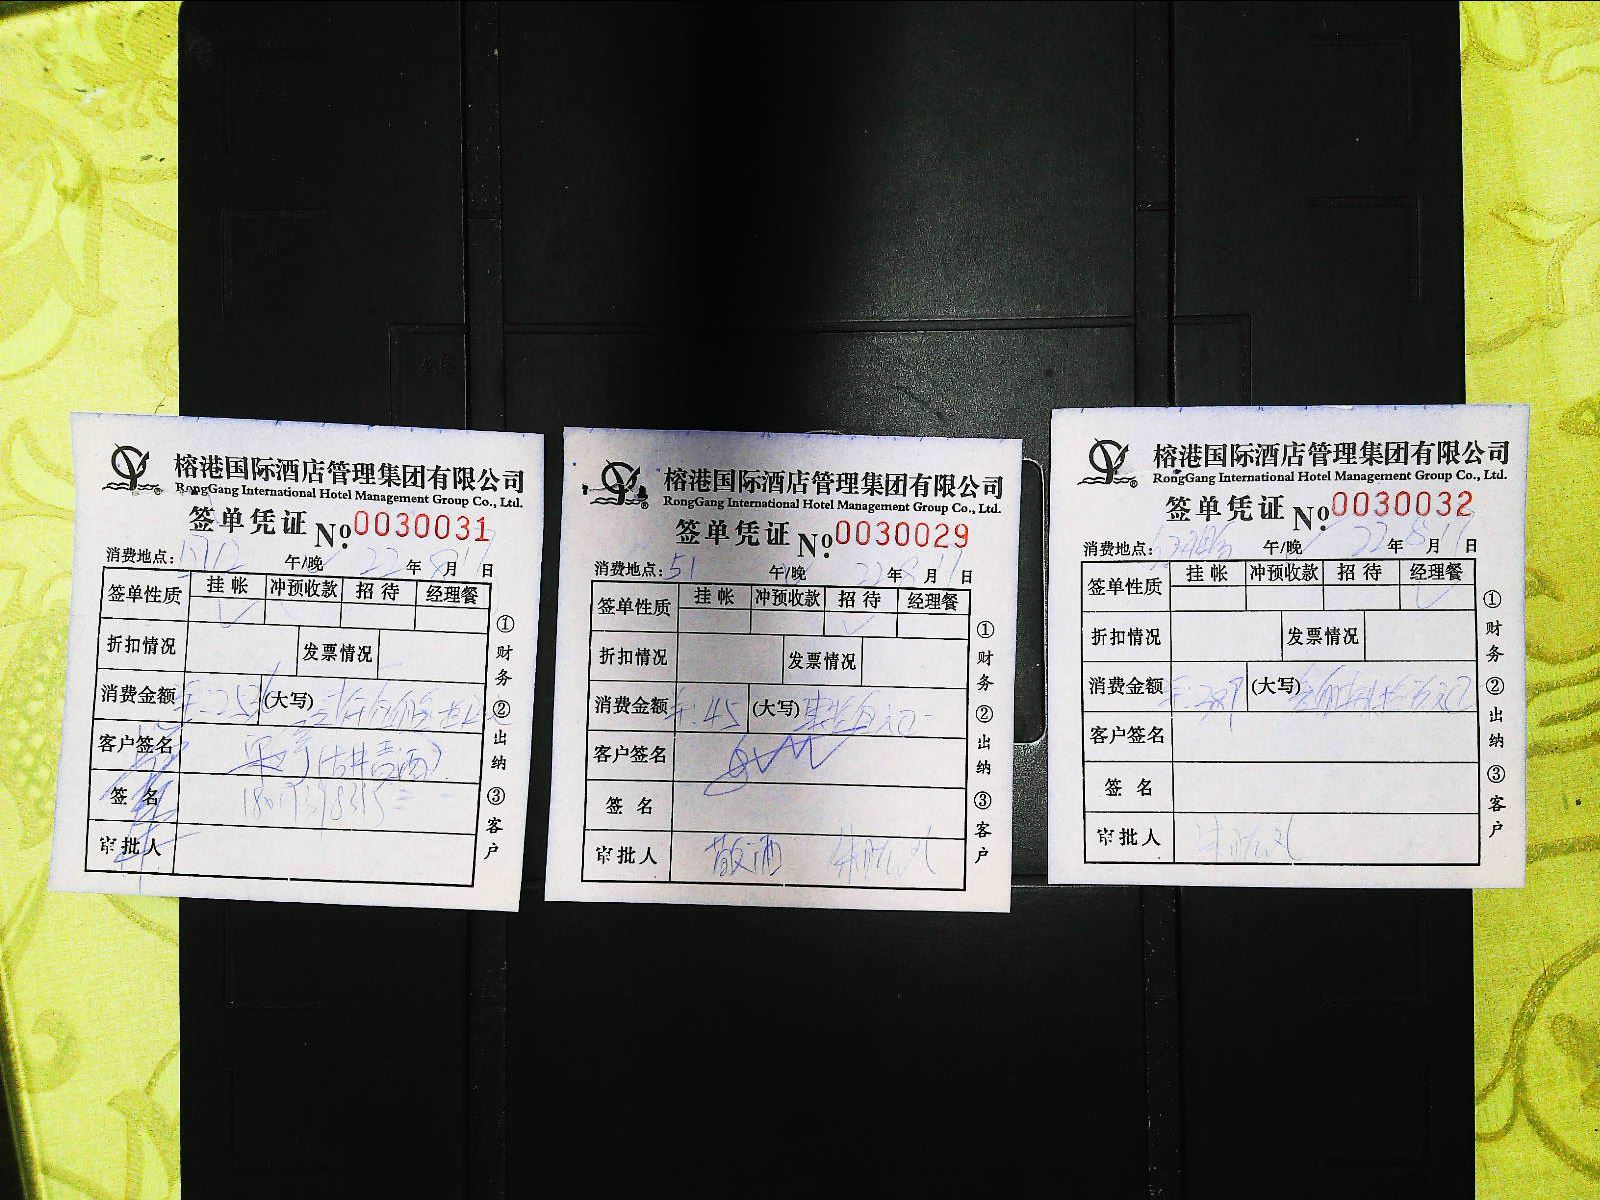 榕港国际酒店管理集团有限公司
RongGang International Hotel Management Group Co., Ltd.
签单凭证 No. 0030031
消费地点: 午/晚 22年8月17日
签单性质 挂帐 冲预收款 招待 经理餐
折扣情况 发票情况
消费金额 (大写)
客户签名 (古井贡酒)
签名
审批人
①财务 ②出纳 ③客户
榕港国际酒店管理集团有限公司
RongGang International Hotel Management Group Co., Ltd.
签单凭证 No. 0030029
消费地点: 51 午/晚 22年8月17日
签单性质 挂帐 冲预收款 招待 经理餐
折扣情况 发票情况
消费金额 45 (大写)
客户签名
签名
审批人 散酒
①财务 ②出纳 ③客户
榕港国际酒店管理集团有限公司
RongGang International Hotel Management Group Co., Ltd.
签单凭证 No. 0030032
消费地点: 午/晚 22年8月17日
签单性质 挂帐 冲预收款 招待 经理餐
折扣情况 发票情况
消费金额 (大写)
客户签名
签名
审批人
①财务 ②出纳 ③客户